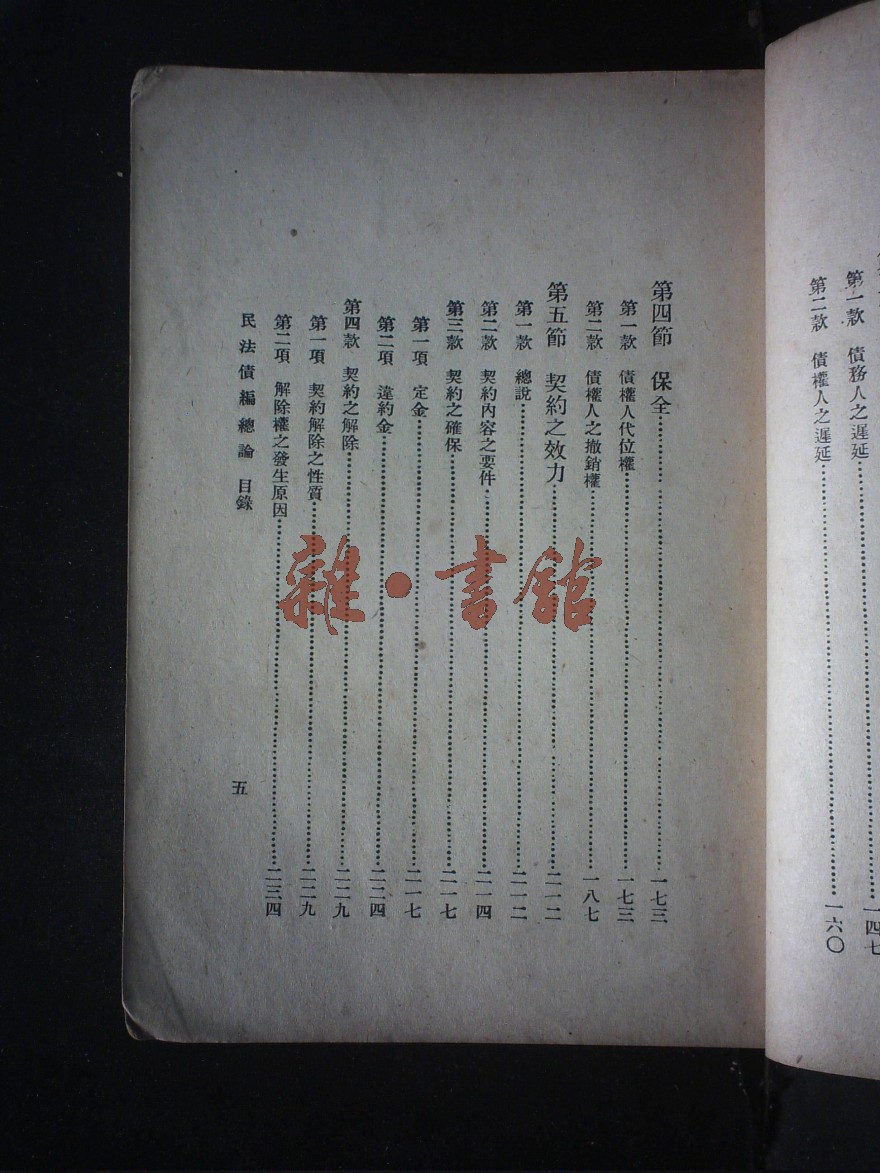 第一款　債務人之遲延……一四七
第二款　債權人之遲延……一六〇
第四節　保全……一七三
第一款　債權人代位權……一七三
第二款　債權人之撤銷權……一八七
第五節　契約之效力……二一二
第一款　總說……二一二
第二款　契約內容之要件……二一四
第三款　契約之確保……二一七
第一項　定金……二一七
第二項　違約金……二二四
第四款　契約之解除……二二九
第一項　契約解除之性質……二二九
第二項　解除權之發生原因……二三四
民法債編總論　目錄　五
雜·書館